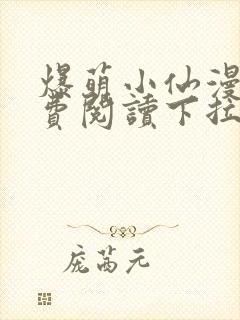 爆萌小仙漫
費閱讀下拉
庞萵元